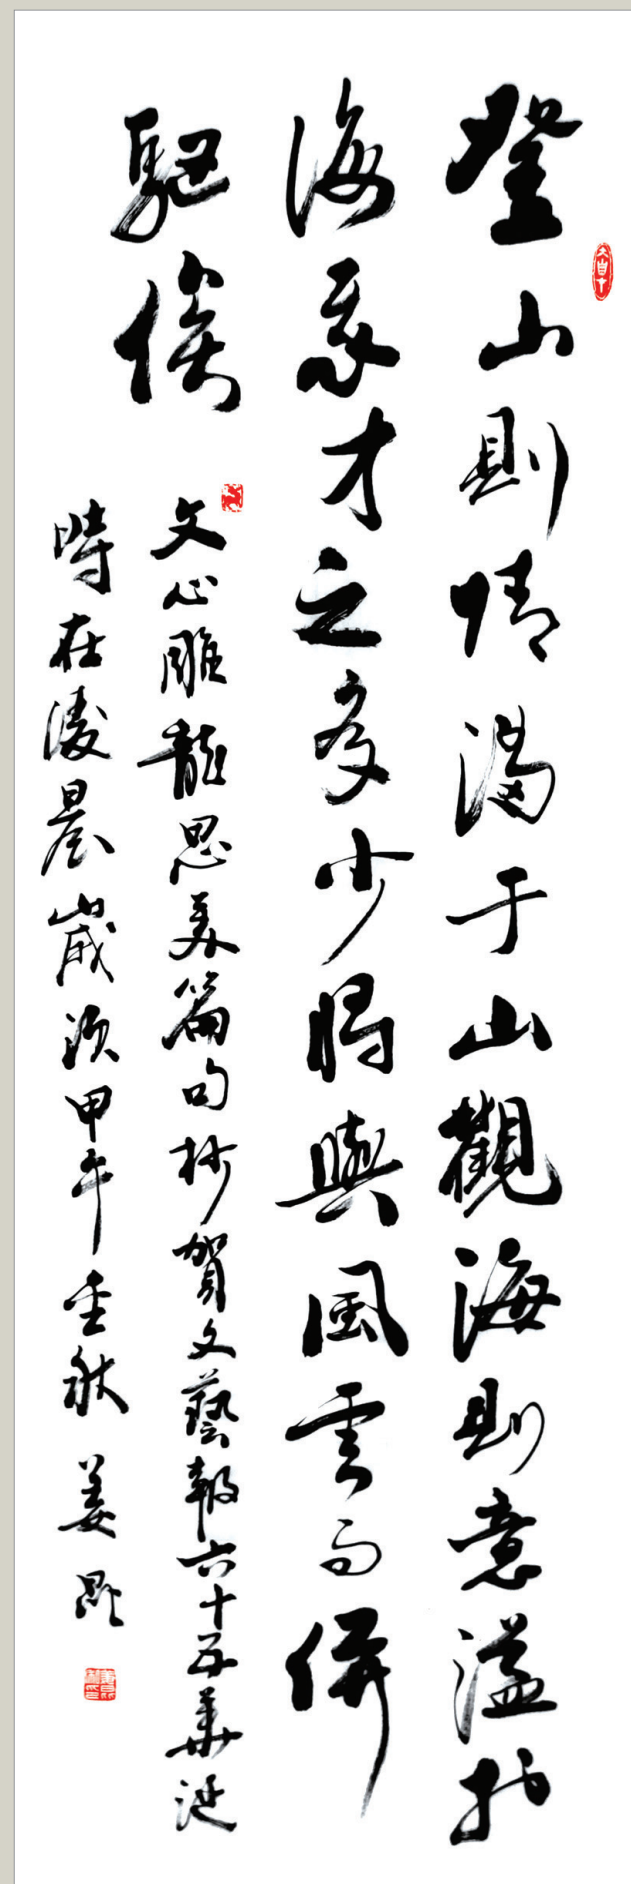 登山則情滿于山觀海則意溢於
海我才之多少將與風雲而併
驅矣
文心雕龍思美篇句抄賀文藝報六十五華誕
時在凌晨歲須甲午金秋 姜昆